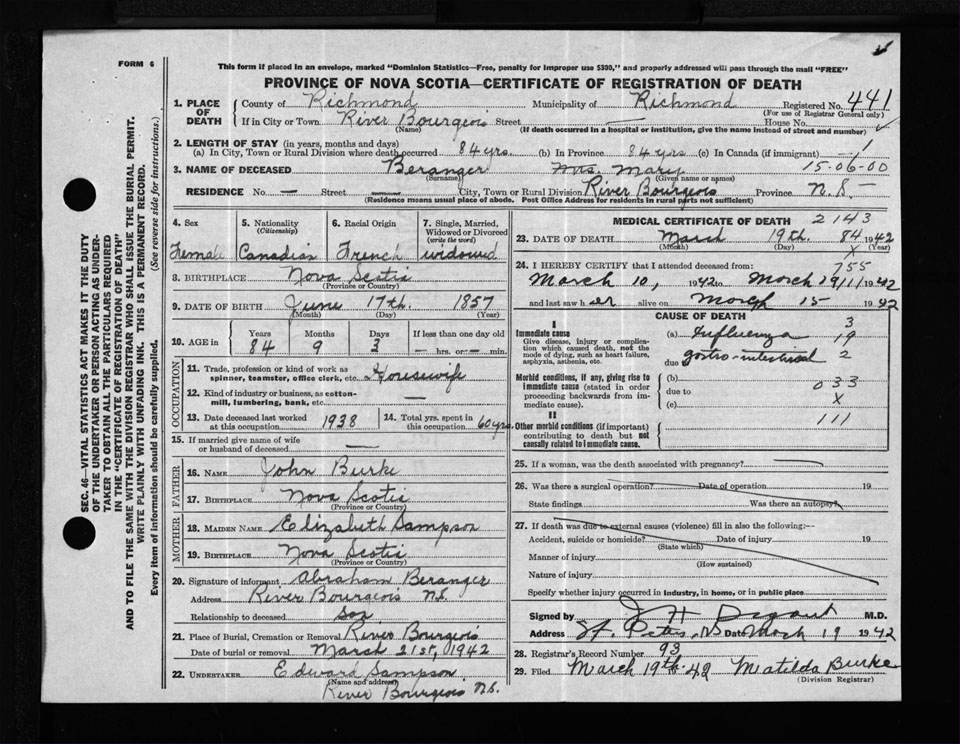 FORM 6
This form if placed in an envelope, marked "Dominion Statistics—Free, penalty for improper use $300," and properly addressed will pass through the mail "FREE"
PROVINCE OF NOVA SCOTIA—CERTIFICATE OF REGISTRATION OF DEATH
1. PLACE OF DEATH
County of Richmond Municipality of Richmond Registered No. 441
(For use of Registrar General only)
If in City or Town River Bourgeois Street — House No.
(Name) (If death occurred in a hospital or institution, give the name instead of street and number)
2. LENGTH OF STAY (in years, months and days)
(a) In City, Town or Rural Division where death occurred 84 yrs. (b) In Province 84 yrs (c) In Canada (if immigrant) — 1
3. NAME OF DECEASED Beranger Mrs. Mary 15-06-00
(Surname) (Given name or names)
RESIDENCE No. — Street — City, Town or Rural Division River Bourgeois Province N.S —
(Residence means usual place of abode. Post Office Address for residents in rural parts not sufficient)
4. Sex
Female
5. Nationality (Citizenship)
Canadian
6. Racial Origin
French
7. Single, Married, Widowed or Divorced (write the word)
widowed
8. BIRTHPLACE Nova Scotia
(Province or Country)
9. DATE OF BIRTH June 17th. 1857
(Month) (Day) (Year)
10. AGE in
Years Months Days If less than one day old
84 9 3 — hrs. or — min.
OCCUPATION
11. Trade, profession or kind of work as spinner, teamster, office clerk, etc. Housewife
12. Kind of industry or business, as cotton-mill, lumbering, bank, etc. —
13. Date deceased last worked at this occupation 1938
14. Total yrs. spent in this occupation 60 yrs.
15. If married give name of wife or husband of deceased —
FATHER
16. NAME John Burke
17. BIRTHPLACE Nova Scotia
(Province or Country)
MOTHER
18. MAIDEN NAME Elizabeth Sampson
19. BIRTHPLACE Nova Scotia
(Province or Country)
20. Signature of informant Abraham Beranger
Address River Bourgeois N.S.
Relationship to deceased son
21. Place of Burial, Cremation or Removal River Bourgeois
Date of burial or removal March 21st, 1942
22. UNDERTAKER Edward Sampson
(Name and address)
River Bourgeois N.S.
MEDICAL CERTIFICATE OF DEATH
2143
23. DATE OF DEATH March 19th. 84 1942
(Month) (Day) X (Year)
24. I HEREBY CERTIFY that I attended deceased from: 755
March 10, 1942 to March 19/11/1942
and last saw her alive on March 15 1942
CAUSE OF DEATH
I
Immediate cause
Give disease, injury or complication which caused death, not the mode of dying, such as heart failure, asphyxia, asthenia, etc.
3
(a) Influenza 19
due gastro-intestinal 2
Morbid conditions, if any, giving rise to immediate cause (stated in order proceeding backwards from immediate cause).
(b)
due to 033
(c) X
II
Other morbid conditions (if important) contributing to death but not causally related to immediate cause.
111
25. If a woman, was the death associated with pregnancy? —
26. Was there a surgical operation? Date of operation 19
State findings Was there an autopsy?
27. If death was due to external causes (violence) fill in also the following:—
Accident, suicide or homicide? Date of injury 19
(State which)
Manner of injury
(How sustained)
Nature of injury
Specify whether injury occurred in industry, in home, or in public place
Signed by M.D.
Address St. Peters, NS Date March 19 1942
28. Registrar's Record Number 93
29. Filed March 19th 42 Matilda Burke
(Division Registrar)
SEC. 46—VITAL STATISTICS ACT MAKES IT THE DUTY OF THE UNDERTAKER OR PERSON ACTING AS UNDERTAKER TO OBTAIN ALL THE PARTICULARS REQUIRED IN THE "CERTIFICATE OF REGISTRATION OF DEATH"
AND TO FILE THE SAME WITH THE DIVISION REGISTRAR WHO SHALL ISSUE THE BURIAL PERMIT.
WRITE PLAINLY WITH UNFADING INK. THIS IS A PERMANENT RECORD.
Every item of information should be carefully supplied. (See reverse side for instructions.)